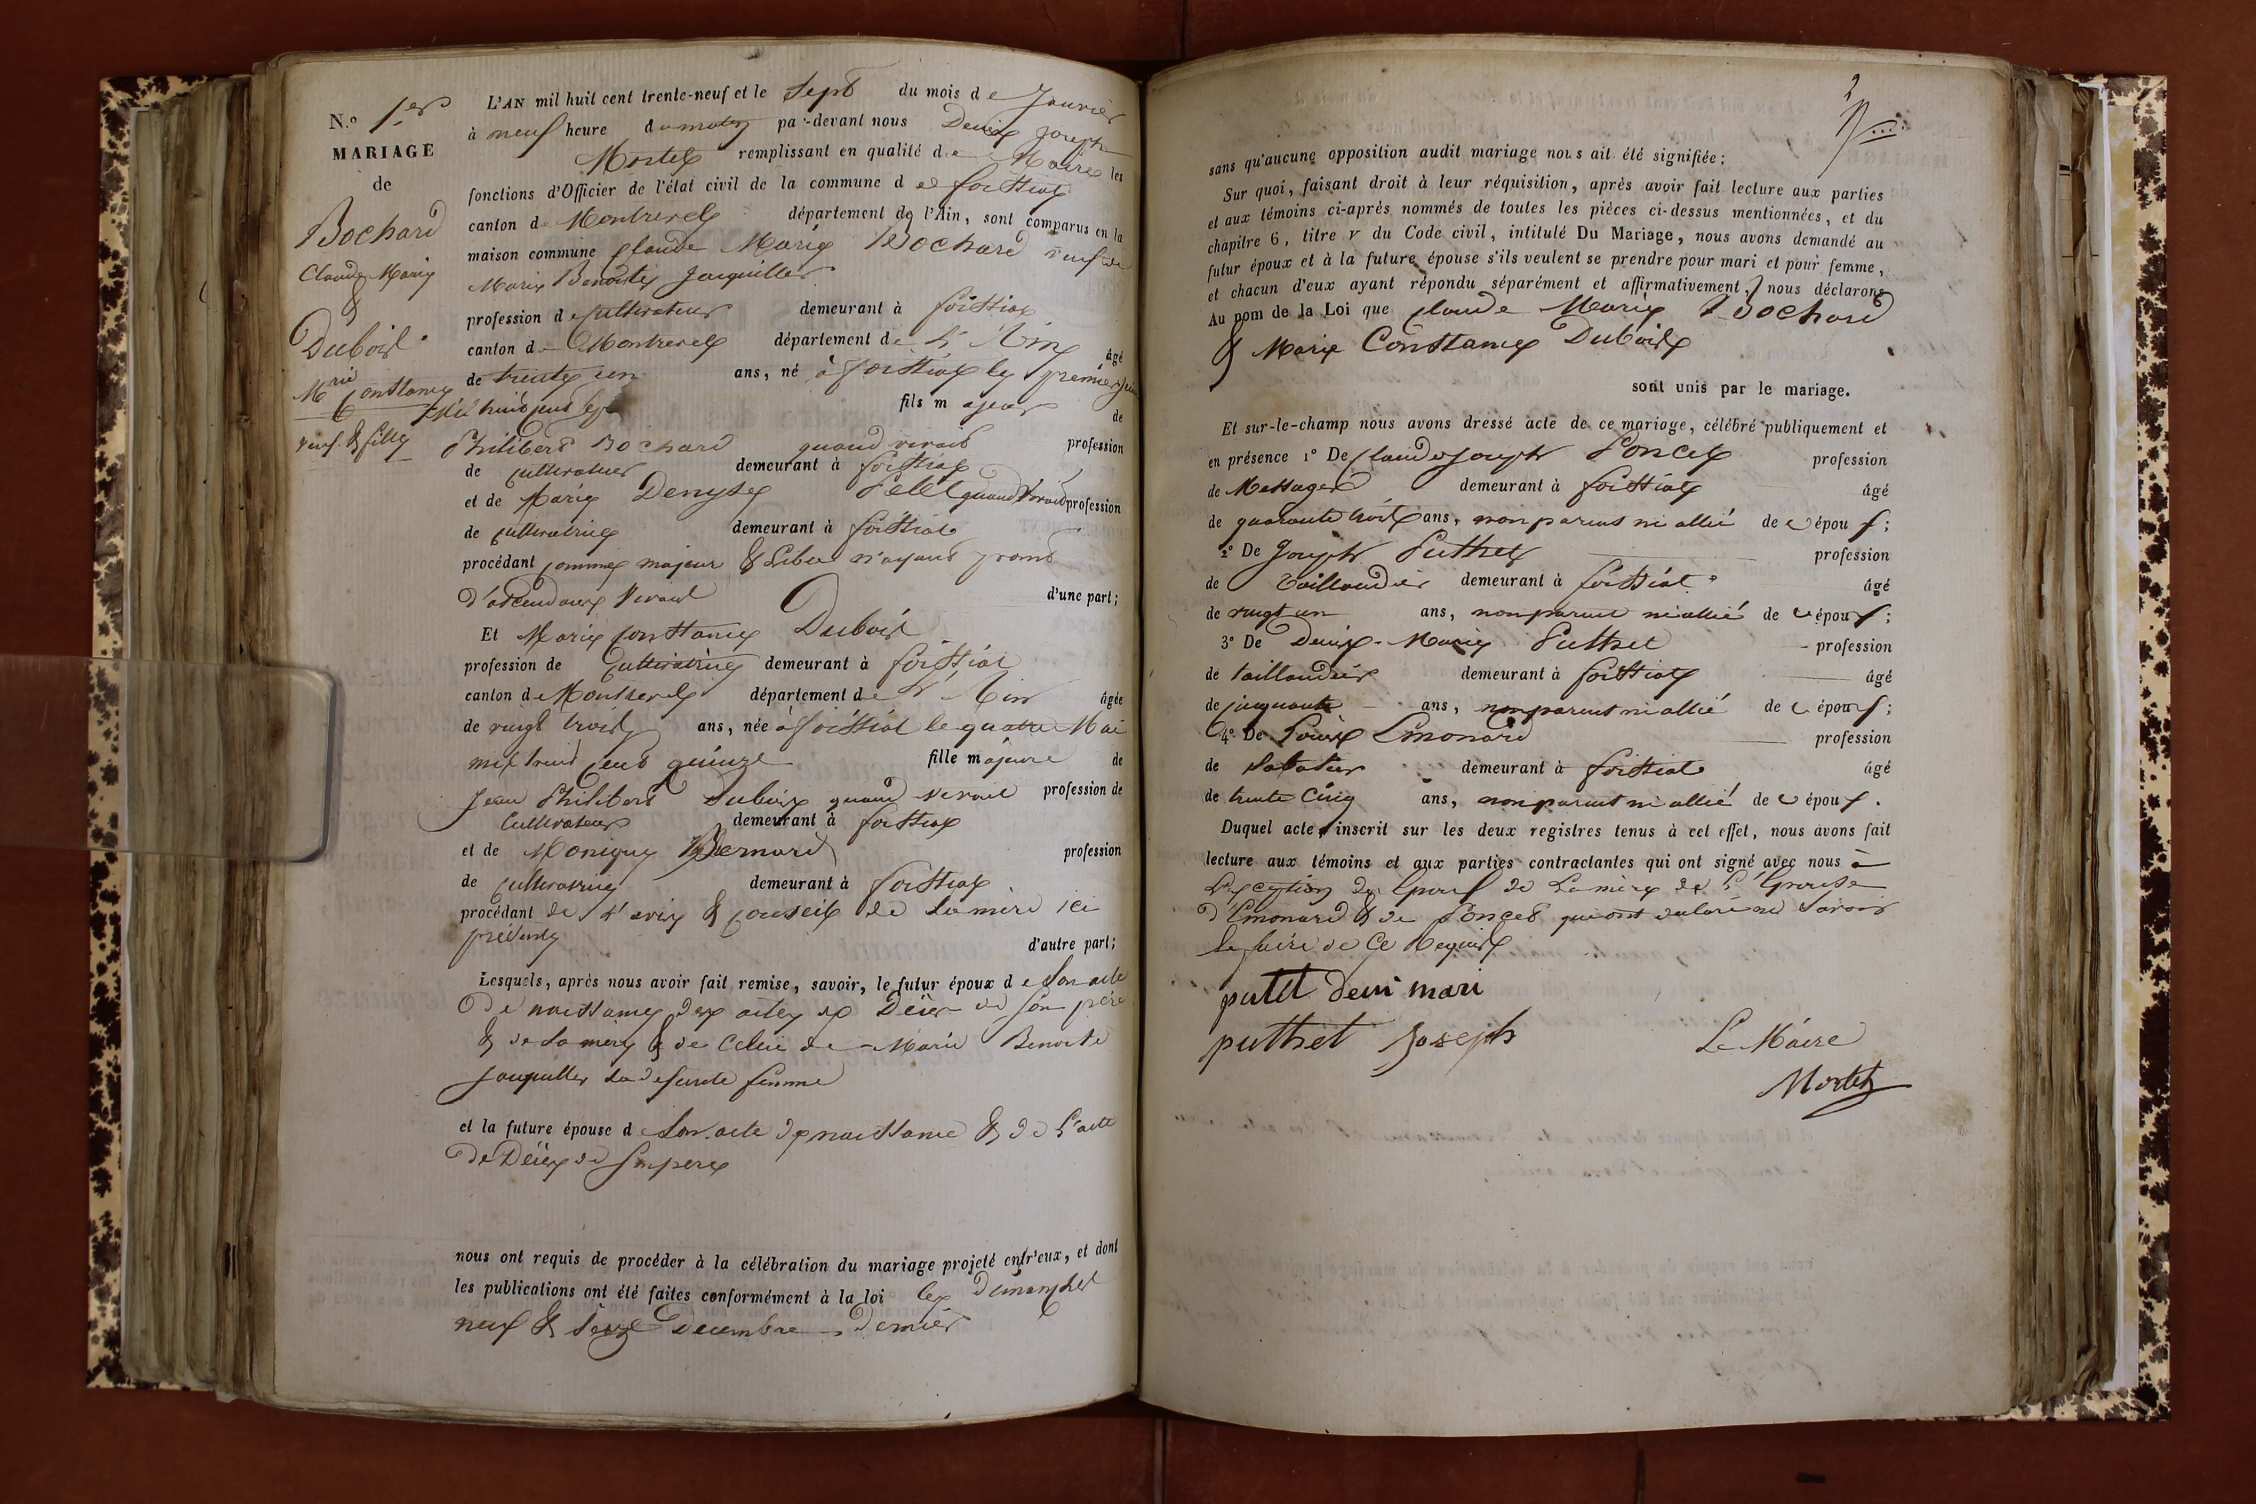 N.o 1.er
MARIAGE
de
Bochard
Claude Marie
&
Dubois
Mrie Constance
veuf & fille
L'AN mil huit cent trente-neuf et le Sept du mois de Janvier
à neuf heure du matin par-devant nous Denis Joseph
Mortel remplissant en qualité de Maire les
fonctions d'Officier de l'état civil de la commune de foissiat
canton de Montrevel département de l'Ain, sont comparus en la
maison commune Claude Marie Bochard veuf de
Marie Benoite Jacquillet
profession de Cultivateur demeurant à foissiat
canton de Montrevel département de L'Ain âgé
de trente un ans, né à foissiat le premier
mil huit cent sept fils majeur de
Philibert Bochard quand vivait profession
de Cultivateur demeurant à foissiat
et de Marie Denyse Pelet quand vivait profession
de Cultivatrice demeurant à foissiat
procédant comme majeur & Libre n'ayant point
d'ascendant vivant d'une part;
Et Marie Constance Dubois
profession de Cultivatrice demeurant à foissiat
canton de Montrevel département de L'Ain âgée
de vingt trois ans, née à foissiat le quatre Mai
mil huit cent quinze fille majeure de
Jean Philibert Dubois quand vivait profession de
Cultivateur demeurant à foissiat
et de Monique Bernard profession
de Cultivatrice demeurant à foissiat
procédant de l'avis & conseil de sa mère ici
présente d'autre part;
Lesquels, après nous avoir fait remise, savoir, le futur époux de son acte
de naissance des actes de Décès de son père
& de sa mère & de celui de Marie Benoite
Jacquillet sa défunte femme
et la future épouse de son acte de naissance & de l'acte
de Décès de son père
nous ont requis de procéder à la célébration du mariage projeté entr'eux, et dont
les publications ont été faites conformément à la loi les Dimanches
neuf & seize décembre dernier
2
sans qu'aucune opposition audit mariage nous ait été signifiée;
Sur quoi, faisant droit à leur réquisition, après avoir fait lecture aux parties
et aux témoins ci-après nommés de toutes les pièces ci-dessus mentionnées, et du
chapitre 6, titre v du Code civil, intitulé Du Mariage, nous avons demandé au
futur époux et à la future épouse s'ils veulent se prendre pour mari et pour femme,
et chacun d'eux ayant répondu séparément et affirmativement, nous déclarons
Au nom de la Loi que Claude Marie Bochard
& Marie Constance Dubois
sont unis par le mariage.
Et sur-le-champ nous avons dressé acte de ce mariage, célébré publiquement et
en présence 1° De Claude Joseph Poncet profession
de Messager demeurant à foissiat âgé
de quarante trois ans, non parent ni allié de l'époux;
2° De Joseph Puthet profession
de taillandier demeurant à foissiat âgé
de vingt un ans, non parent ni allié de l'époux;
3° De Denis-Marie Puthet profession
de taillandier demeurant à foissiat âgé
de cinquante ans, non parent ni allié de l'époux;
4° De Louis Emonard profession
de Sabotier demeurant à foissiat âgé
de trente cinq ans, non parent ni allié de l'époux.
Duquel acte, inscrit sur les deux registres tenus à cet effet, nous avons fait
lecture aux témoins et aux parties contractantes qui ont signé avec nous à
l'exception de l'époux de la mère de l'épouse
d'Emonard & de Poncet qui ont déclaré ne savoir
le faire de ce Requis
putet deni mari
puthet Joseph
Le Maire
Mortel